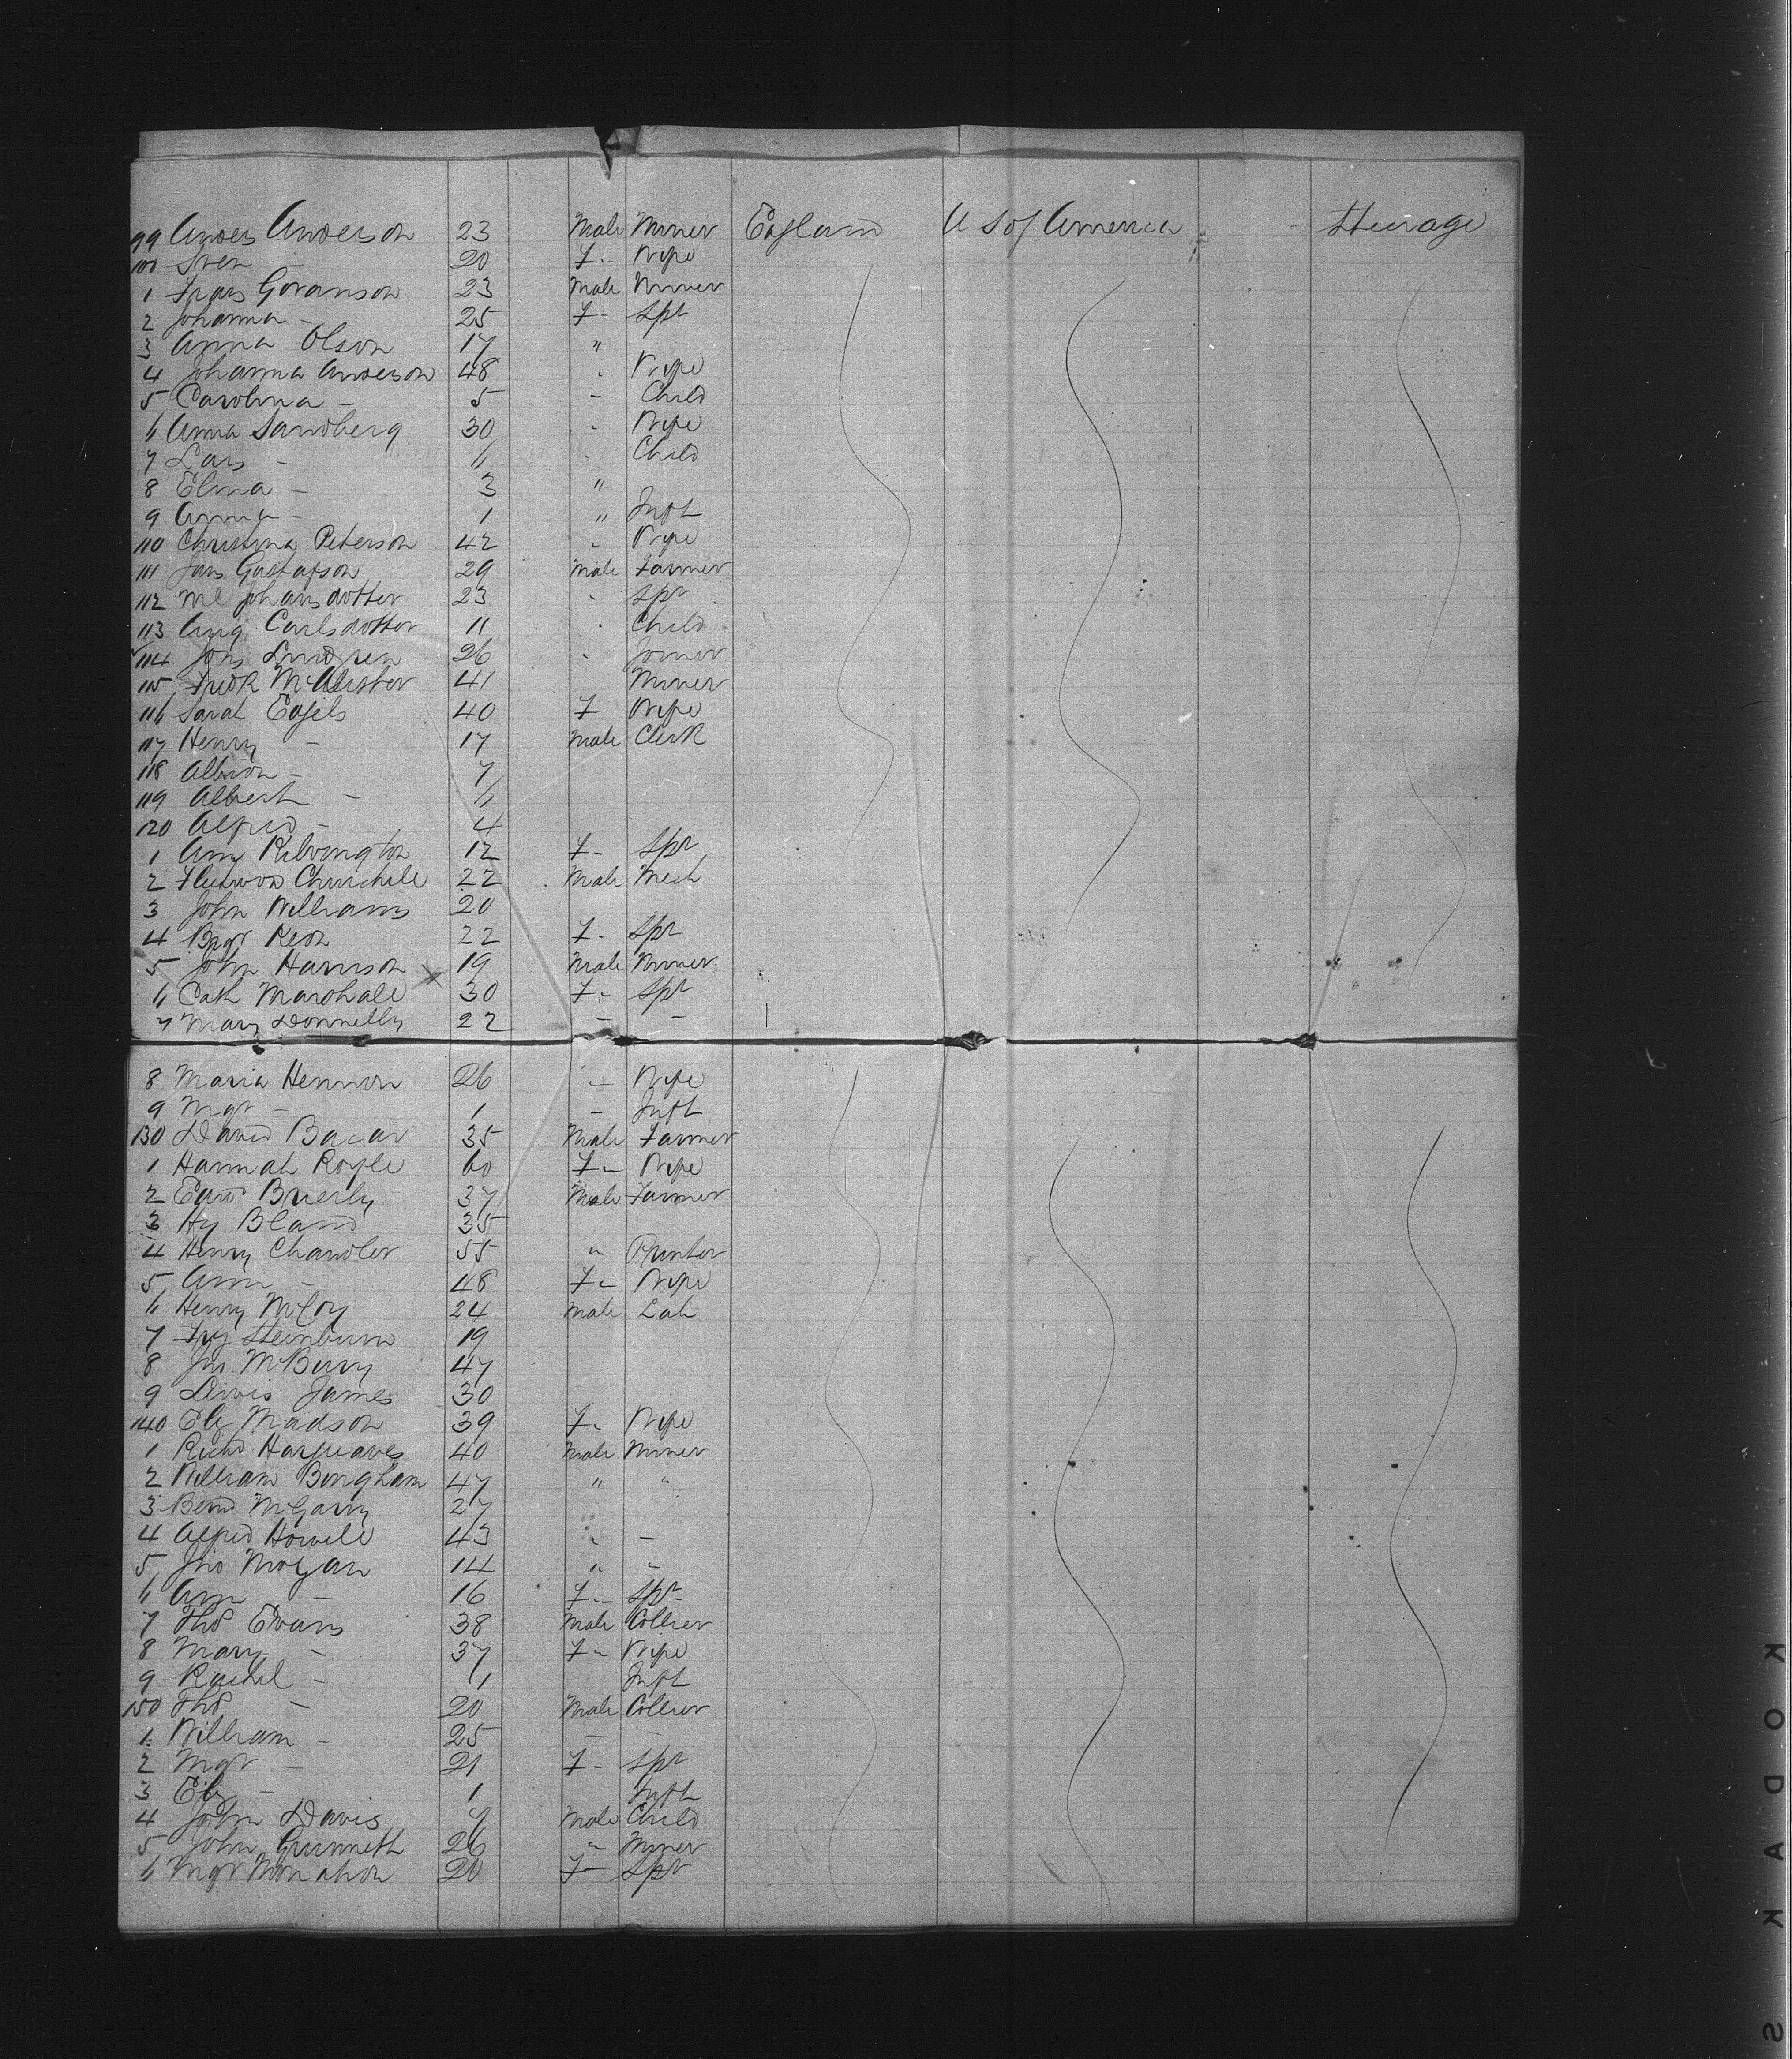 99 Anders Anderson 23 Male Miner England U S of America Steerage
100 Sven - 20 F - Wife
1 Frans Goranson 23 Male Miner
2 Johanna - 25 F - Spr
3 Anna Olson 17 "
4 Johanna Anderson 48 " Wife
5 Carolina - 5 - Child
6 Anna Sandberg 30 " Wife
7 Lars - 6 " Child
8 Elma - 3 "
9 Anna - 1 " Inft
110 Christina Peterson 42 " Wife
111 Jans Gustafson 29 Male Farmer
112 Ml Johansdotter 23 " Spr
113 Aug Carlsdotter 11 " Child
114 Jons Lundgren 26 " Joiner
115 Fredk McAlister 41 Miner
116 Sarah Engels 40 F Wife
117 Henry - 17 Male Clerk
118 Albion - 7
119 Albert - 6
120 Alfred - 4
1 Amy Rilvington 12 F - Spr
2 Fleetwood Churchill 22 Male Mech
3 John Williams 20
4 Bgr Keon 22 F - Spr
5 John Harrison X 19 Male Miner
6 Cath Marshall 30 F - Spr
7 Mary Donnelly 22 - -
8 Maria Hennon 26 " Wife
9 Mgr - 1 - Inft
130 David Bacar 35 Male Farmer
1 Hannah Royle 60 F - Wife
2 Edwd Brierly 37 Male Farmer
3 Hy Bland 35
4 Henry Chandler 55 " Printer
5 Ann - 48 F - Wife
6 Henry McCoy 24 Male Lab
7 Fry Steinburn 19
8 Jas McBurry 47
9 Lewis James 30
140 Elz Madson 39 F - Wife
1 Richd Hargreaves 40 Male Miner
2 William Bingham 47 " "
3 Bernd McGarry 27
4 Alfred Howell 43 " -
5 Jno Morgan 14 " -
6 Ann - 16 F - Spr
7 Thos Evans 38 Male Collier
8 Mary - 37 F - Wife
9 Rachel - 1 Inft
150 Thos - 20 Male Collier
1 William - 25 - -
2 Mgr - 21 F - Spr
3 Elz - 1 Inft
4 John Davis 7 Male Child
5 John Grunneth 26 " Miner
6 Mgr Monahon 20 F - Spr
KODAK S